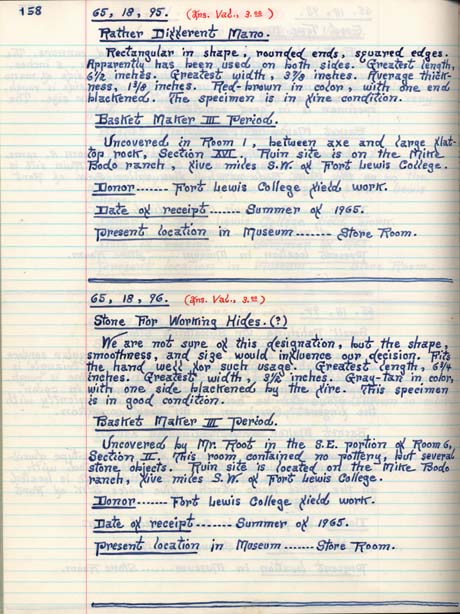 158
65, 18, 95. (Ins. Val., 3.00)
Rather Different Mano.
Rectangular in shape, rounded ends, squared edges.
Apparently has been used on both sides. Greatest length,
6 1/2 inches. Greatest width, 3 7/8 inches. Average thick-
ness, 1 3/8 inches. Red-brown in color, with one end
blackened. The specimen is in fine condition.
Basket Maker III Period.
Uncovered in Room 1, between axe and large flat-
top rock, Section XVI. Ruin site is on the Mike
Bodo ranch, five miles S.W. of Fort Lewis College.
Donor....... Fort Lewis College field work.
Date of receipt....... Summer of 1965.
Present location in Museum....... Store Room.
65, 18, 96. (Ins. Val., 3.00)
Stone For Working Hides.(?)
We are not sure of this designation, but the shape,
smoothness, and size would influence our decision. Fits
the hand well for such usage. Greatest length, 6 3/4
inches. Greatest width, 3 1/2 inches. Gray-tan in color,
with one side blackened by the fire. This specimen
is in good condition.
Basket Maker III Period.
Uncovered by Mr. Root in the S.E. portion of Room 6,
Section II. This room contained no pottery, but several
stone objects. Ruin site is located on the Mike Bodo
ranch, five miles S.W. of Fort Lewis College.
Donor....... Fort Lewis College field work.
Date of receipt........ Summer of 1965.
Present location in Museum....... Store Room.